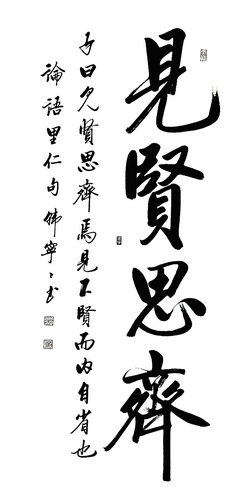 見賢思齊
子曰見賢思齊焉見不賢而內自省也
論語里仁句佛寧〻書